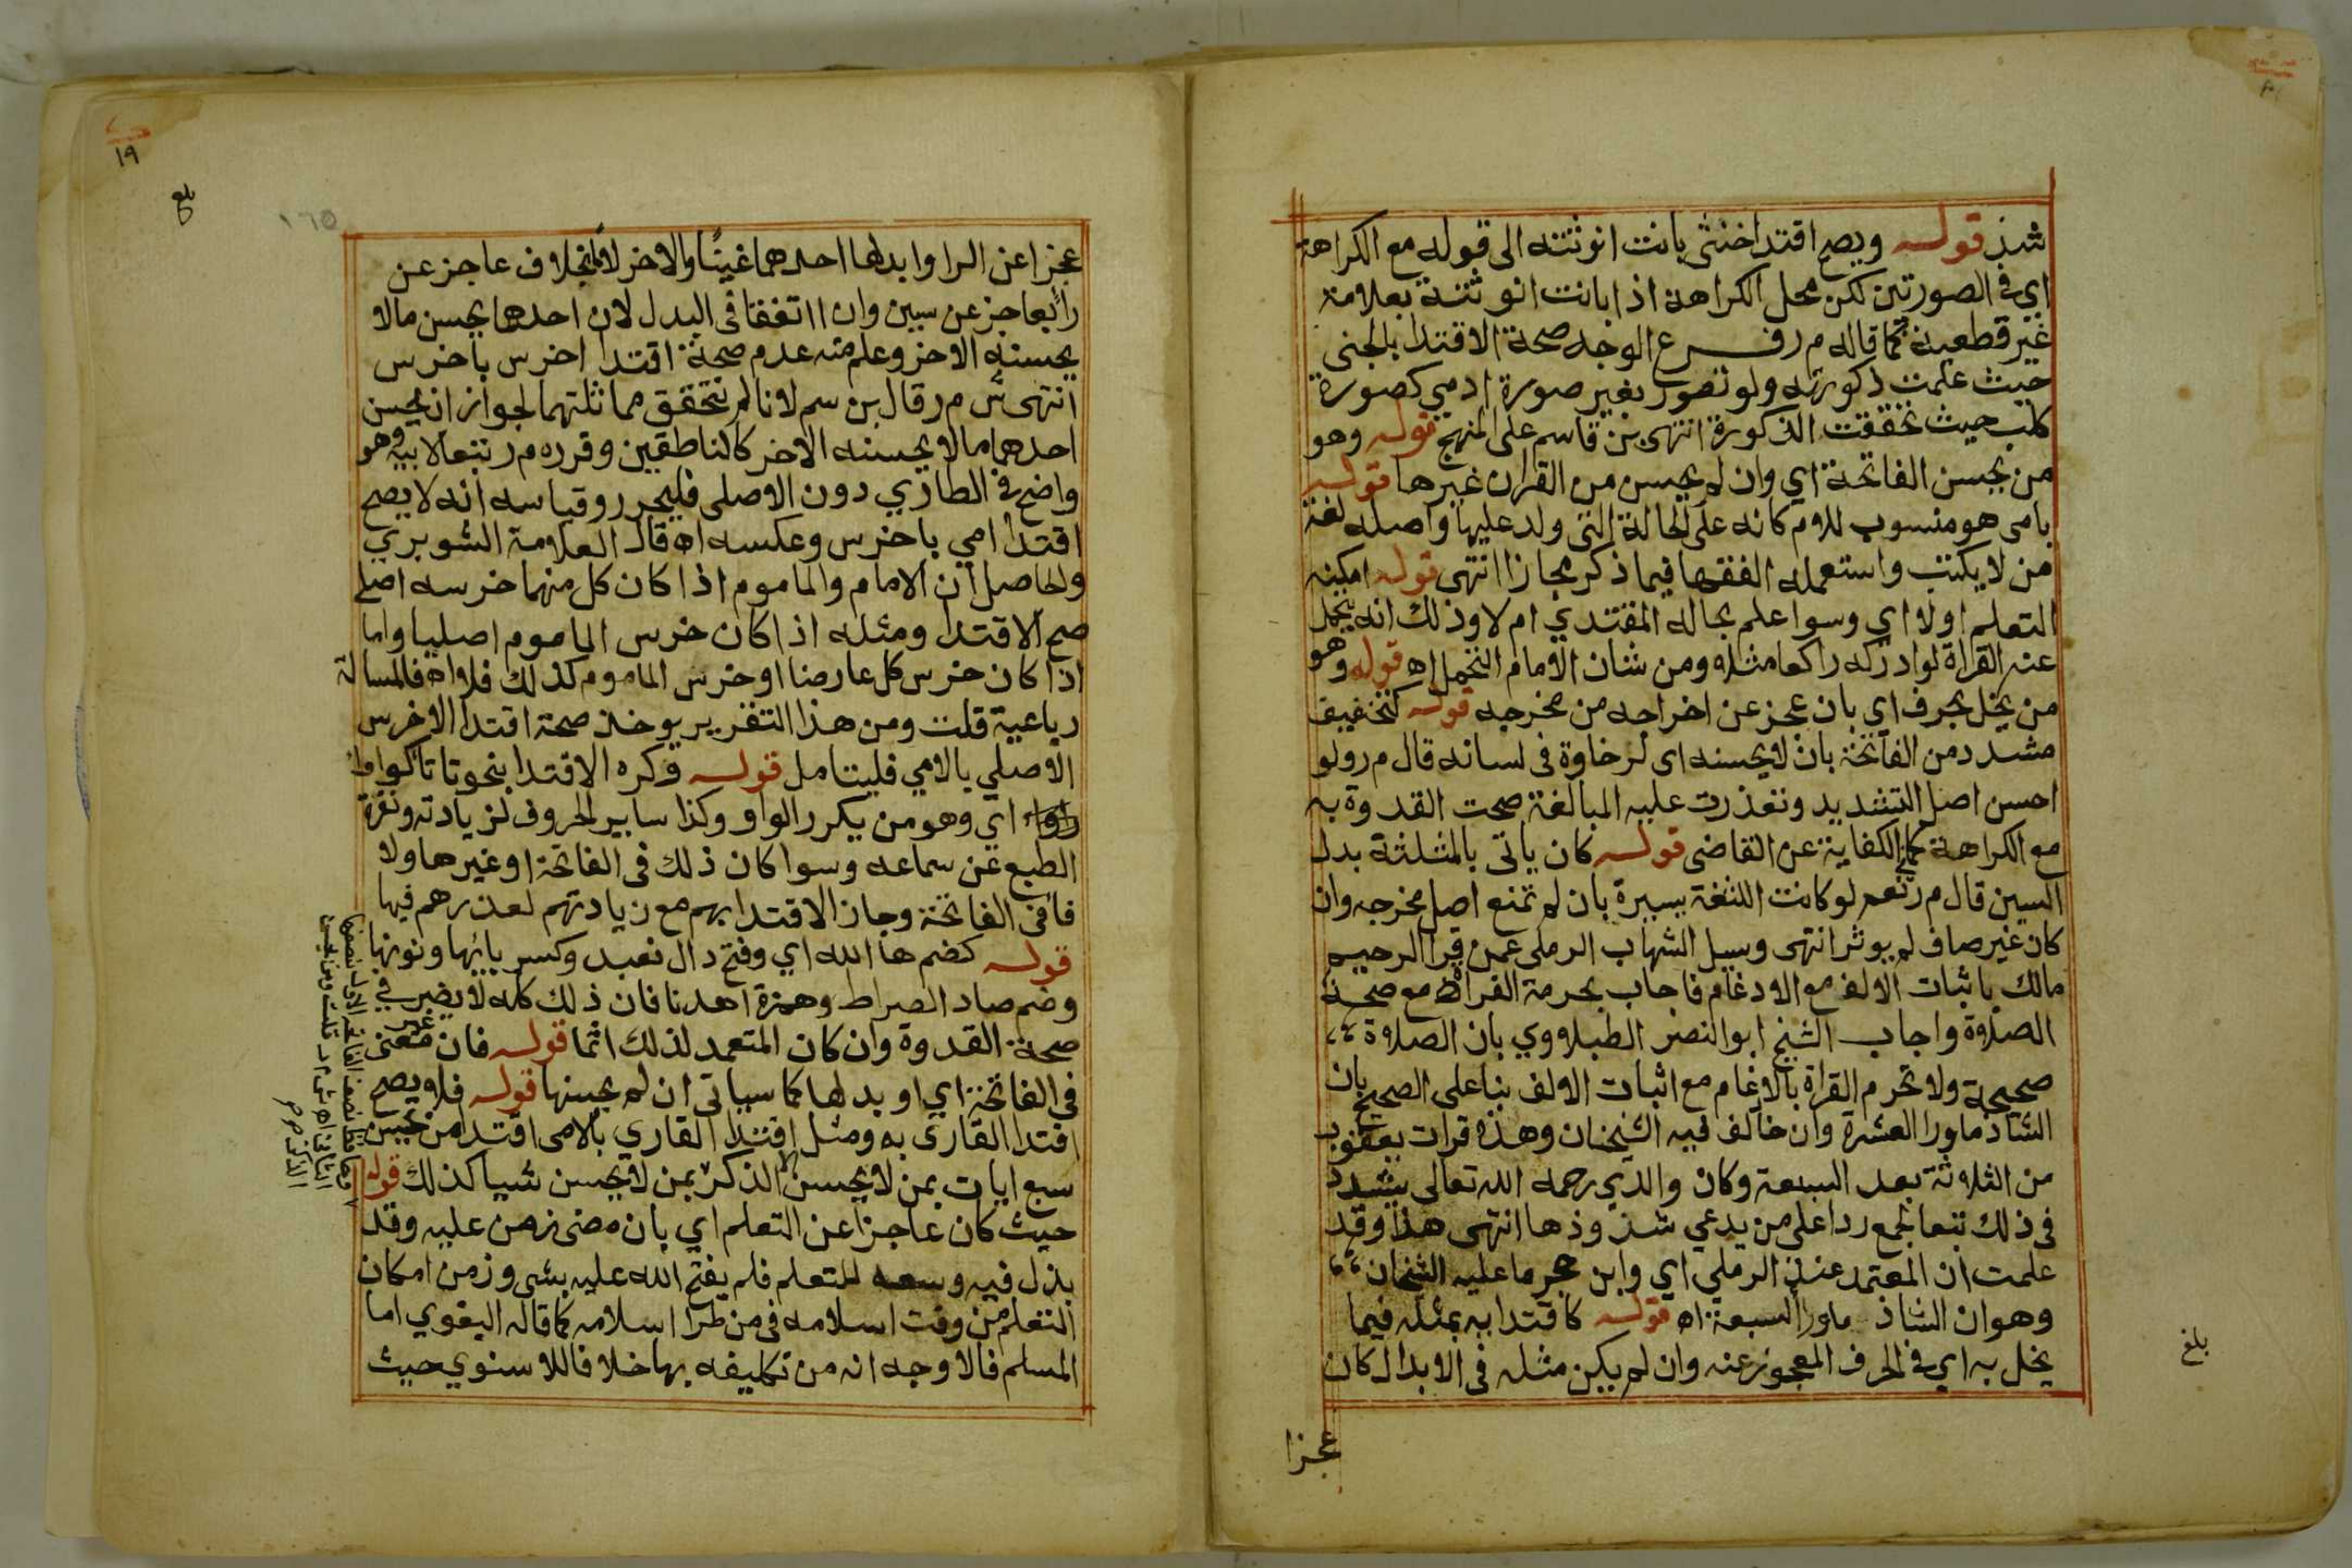 شذ قوله ويصح اقتدا خنثى بانت انوثته الى قوله مع الكراهة
اي في الصورتين لكن محل الكراهة اذا بانت انوثته بعلامة
غير قطعية كما قاله م ر فرع الوجه صحة الاقتدا بالجني
حيث علمت ذكورته ولو تصور بغير صورة ادمي كصورة
كلب حيث تحققت الذكورة انتهى بن قاسم على المنهج قوله وهو
من يحسن الفاتحة اي وان لم يحسن من القران غيرها قوله
بامي هو منسوب للام كانه على الحالة التي ولد عليها واصله لغة
من لا يكتب واستعمله الفقها فيما ذكر مجازا انتهى قوله امكنه
التعلم اولا اي وسوا علم بحاله المقتدي ام لا وذلك انه يتحمل
عنه القراة لو ادركه راكعا مثلا ومن شان الامام التحمل اه قوله وهو
من يخل بحرف اي بان عجز عن اخراجه من مخرجه قوله كتخفيف
مشدد من الفاتحة بان لا يحسنه اي لرخاوة في لسانه قال م ر ولو
احسن اصل التشديد وتعذرت عليه المبالغة صحت القدوة به
مع الكراهة كما في الكفاية عن القاضي قوله كان ياتي بالمثلثة بدل
السين قال م ر نعم لو كانت اللثغة يسيرة بان لم تمنع اصل مخرجه وان
كان غير صاف لم يوثر انتهى وسيل الشهاب الرملي عمن قرا الرحيم
مالك باثبات الالف مع الادغام فاجاب بحرمة القراة مع صحة
الصلاة واجاب الشيخ ابو النصر الطبلاوي بان الصلاة
صحيحة ولا تحرم القراة بالادغام مع اثبات الالف بنا على الصحيح بان
الشاذ ماورا العشرة وان خالف فيه الشيخان وهذه قرات يعقوب
من الثلاثة بعد السبعة وكان والدي رحمه الله تعالى يشدد
في ذلك تبعا لجمع ردا على من يدعي شذوذها انتهى هذا وقد
علمت ان المعتمد عند الرملي اي وابن حجر ما عليه الشيخان
وهو ان الشاذ ماورا السبعة اه قوله كاقتدا به بمثله فيما
يخل به اي في الحرف المعجوز عنه وان لم يكن مثله في الابدال كان
عجزا
بلغ
١٩
بلغ
١٦٥
عجزا عن الرا وابدلها احدهما غينا والاخر لاما بخلاف عاجز عن
را بعاجز عن سين وان اتفقا في البدل لان احدهما يحسن ما لا
يحسنه الاخر وعلم منه عدم صحة اقتدا اخرس باخرس
انتهى ش م ر قال بن سم لانا لم نتحقق مماثلتهما لجواز ان يحسن
احدهما ما لا يحسنه الاخر كالناطقين وقرره م ر تبعا لابيه وهو
واضح في الطاري دون الاصلي فليحرر وقياسه انه لا يصح
اقتدا امي باخرس وعكسه اه قال العلامة الشوبري
والحاصل ان الامام والماموم اذا كان كل منهما خرسه اصلي
صح الاقتدا ومثله اذا كان خرس الماموم اصليا واما
اذا كان خرس كل عارضا او خرس الماموم كذلك فلا اه فالمسالة
رباعية قلت ومن هذا التقرير يوخذ صحة اقتدا الاخرس
الاصلي بالامي فليتامل قوله وكره الاقتدا بنحو تاتا كواوا
اي وهو من يكرر الواو وكذا ساير الحروف لزيادته ونفرة
الطبع عن سماعه وسوا كان ذلك في الفاتحة او غيرها ولا
فافي الفاتحة وجاز الاقتدا بهم مع زيادتهم لعذرهم فيها
قوله كضم ها الله اي وفتح دال نعبد وكسر بائها ونونها
وضم صاد الصراط وهمزة اهدنا فان ذلك كله لا يضر في
صحة القدوة وان كان المتعمد لذلك اثما قوله فان غير معنى
في الفاتحة اي او بدلها كما سياتي ان لم يحسنها قوله فلا يصح
اقتدا القاري به ومثل اقتدا القاري بالامي اقتدا من يحسن
سبع ايات بمن لا يحسن الا الذكر بمن لا يحسن شيا كذلك قوله
حيث كان عاجزا عن التعلم اي بان مضى زمن عليه وقد
بذل فيه وسعه للتعلم فلم يفتح الله عليه بشي وزمن امكان
التعلم من وقت اسلامه في من طرا اسلامه كما قاله البغوي اما
المسلم فالاوجه انه من تكليفه بها خلافا للاسنوي حيث